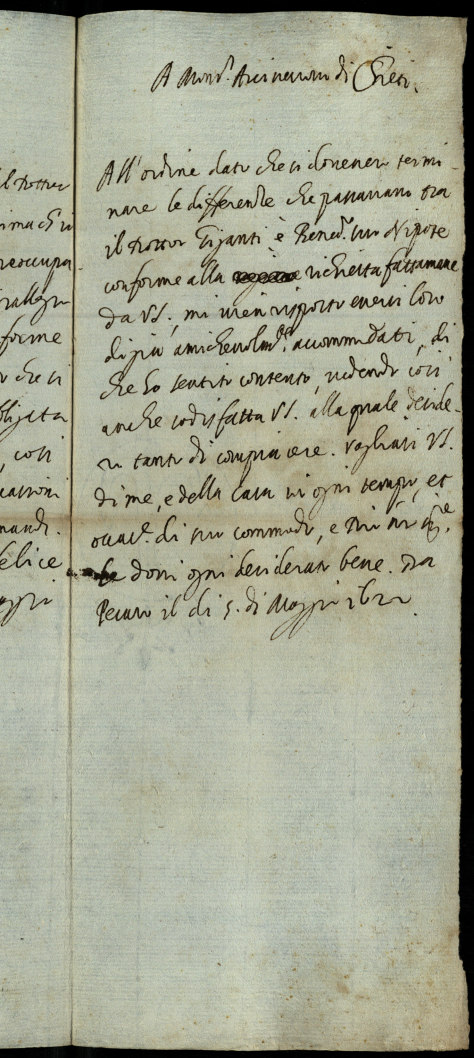 A Mons.r Arcivescovo di Chieti.
il dottor
forme
che si
, così
mandi.
felice
All'ordine dato che si dovenero termi-
nare le differenze che passavano tra
il Dottor Giganti è Bened.º suo Nipote
conforme alla richiesta fattamene
da VS., mi vien risposto eversi loro
di più amichevolm.te accommodati, di
che ho sentito contento, vedendo così
anche sodisfatta VS. alla quale deside-
ro tanto di compiacere. vagliasi VS.
di me, e della Casa in ogni tempo, et
occas.e di suo commodo, e
le doni ogni desiderato bene. Da
Pesaro il di 5. di Maggio 1622